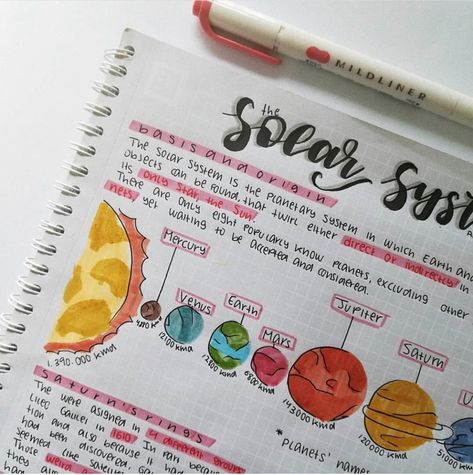 MILDLINER
the
Solar Syst
basis and origin
The solar system is the planetary system in which Earth and
objects can be found, that twirl either direct or indirectly in
its only star, the sun.
There are only eight popularly know planets, excluding other
nets, yet waiting to be accepted and considered.
Mercury
Venus
Earth
Mars
Jupiter
Saturn
U
1.390.000 kmd
12100 kmd
6800 kmd
143000 kmd
120000 kmd
saturn's rings
The were asigned in 4 different groups
tion and also because
lileo Galilei in 1610. In
had been discovered, Ga
seemed like satellite
Those weird a
* Planets' name